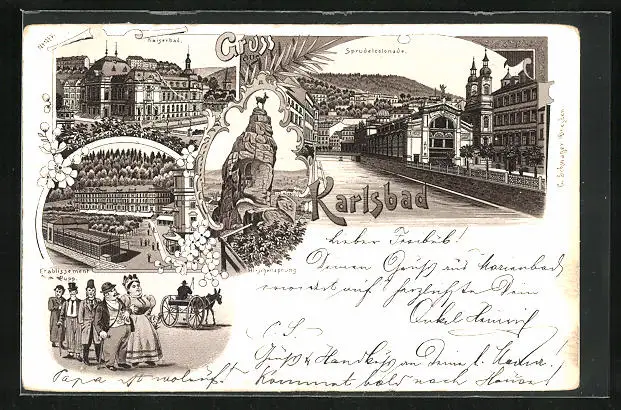 Kaiserbad.
Gruss
Sprudelcolonade.
Karlsbad
Etablissement
Pupp.
Hirschensprung
Lieber
Deinen Gruß aus Marienbad
erwidert auf herzlichste Dein
Onkel Heinrich
Gruß & Handkuss an Deine l. Mama!
Papa ist wohlauf! Kommt bald nach Hause!